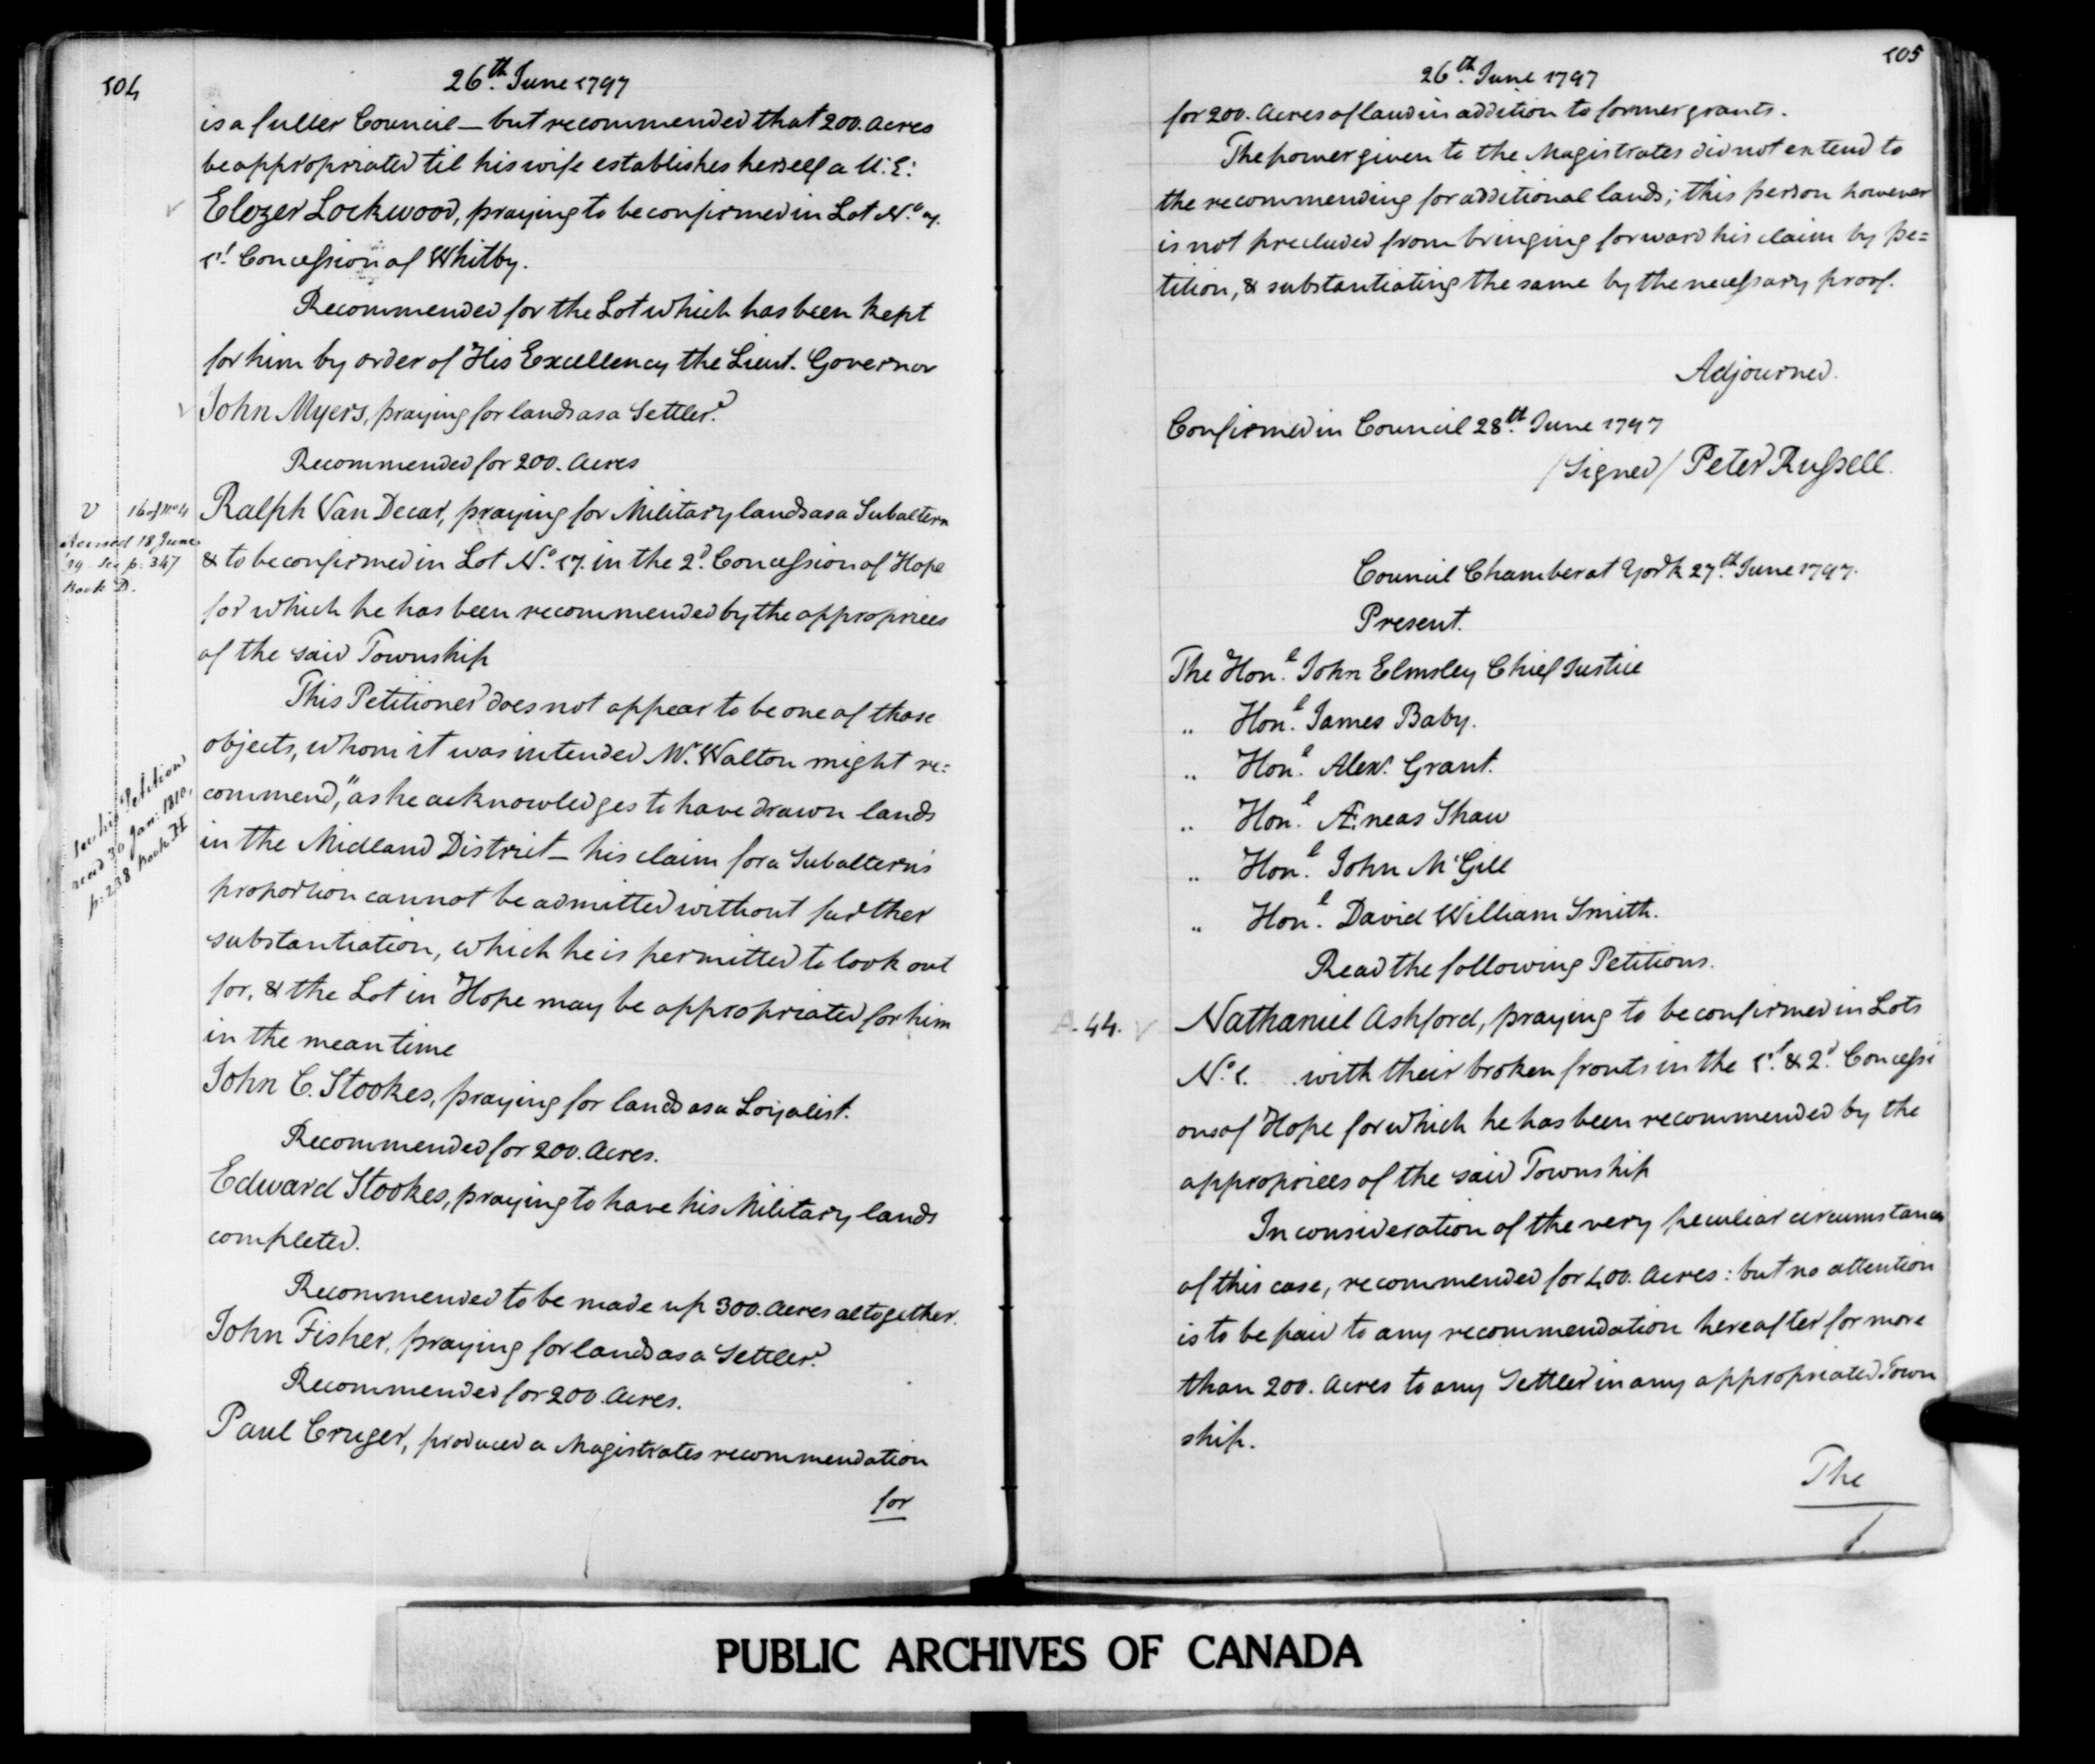 104
26th June 1797
is a fuller Council — but recommended that 200. Acres
be appropriated til his wife establishes herself a U: E:
Elozer Lockwood, praying to be confirmed in Lot No.
1st Concession of Whitby.
Recommended for the Lot which has been kept
for him by order of His Excellency the Lieut. Governor
John Myers, praying for lands as a Settler.
Recommended for 200. Acres
V
Revised 18 June
See p. 347
Book D.
Ralph Van Decar, praying for Military lands as a Subaltern
& to be confirmed in Lot No. 17. in the 2d. Concession of Hope
for which he has been recommended by the appropriees
of the said Township
This Petitioner does not appear to be one of those
objects, whom it was intended Mr. Walton might re=
commend, "as he acknowledges to have drawn lands
in the Midland District — his claim for a Subaltern's
proportion cannot be admitted without further
substantiation, which he is permitted to look out
for, & the Lot in Hope may be appropriated for him
in the mean time
See his Petition
read 30 Jan: 1810,
p: 238 Book H
John C. Stookes, praying for lands as a Loyalist.
Recommended for 200. Acres.
Edward Stookes, praying to have his Military lands
completed.
Recommended to be made up 300. Acres altogether.
John Fisher, praying for lands as a Settler.
Recommended for 200. Acres.
Paul Cruger, produced a Magistrates recommendation
for
105
26th. June 1797
for 200. Acres of land in addition to former grants.
The power given to the Magistrates did not extend to
the recommending for additional lands; this person however
is not precluded from bringing forward his claim by pe=
tition, & substantiating the same by the necessary proof.
Adjourned.
Confirmed in Council 28th. June 1797
/Signed/ Peter Russell.
Council Chamber at York 27th. June 1797.
Present.
The Honl. John Elmsley Chief Justice
„ Honl. James Baby.
„ Honl. Alexr. Grant.
„ Honl. Æneas Shaw
„ Honl. John McGill
„ Honl. David William Smith.
Read the following Petitions.
A. 44.
Nathaniel Ashford, praying to be confirmed in Lots
No. 1. with their broken fronts in the 1st. & 2d. Concessi
ons of Hope for which he has been recommended by the
appropriees of the said Township
In consideration of the very peculiar circumstances
of this case, recommended for 400. Acres: but no attention
is to be paid to any recommendation hereafter for more
than 200. Acres to any Settler in any appropriated Town
ship.
The
PUBLIC ARCHIVES OF CANADA